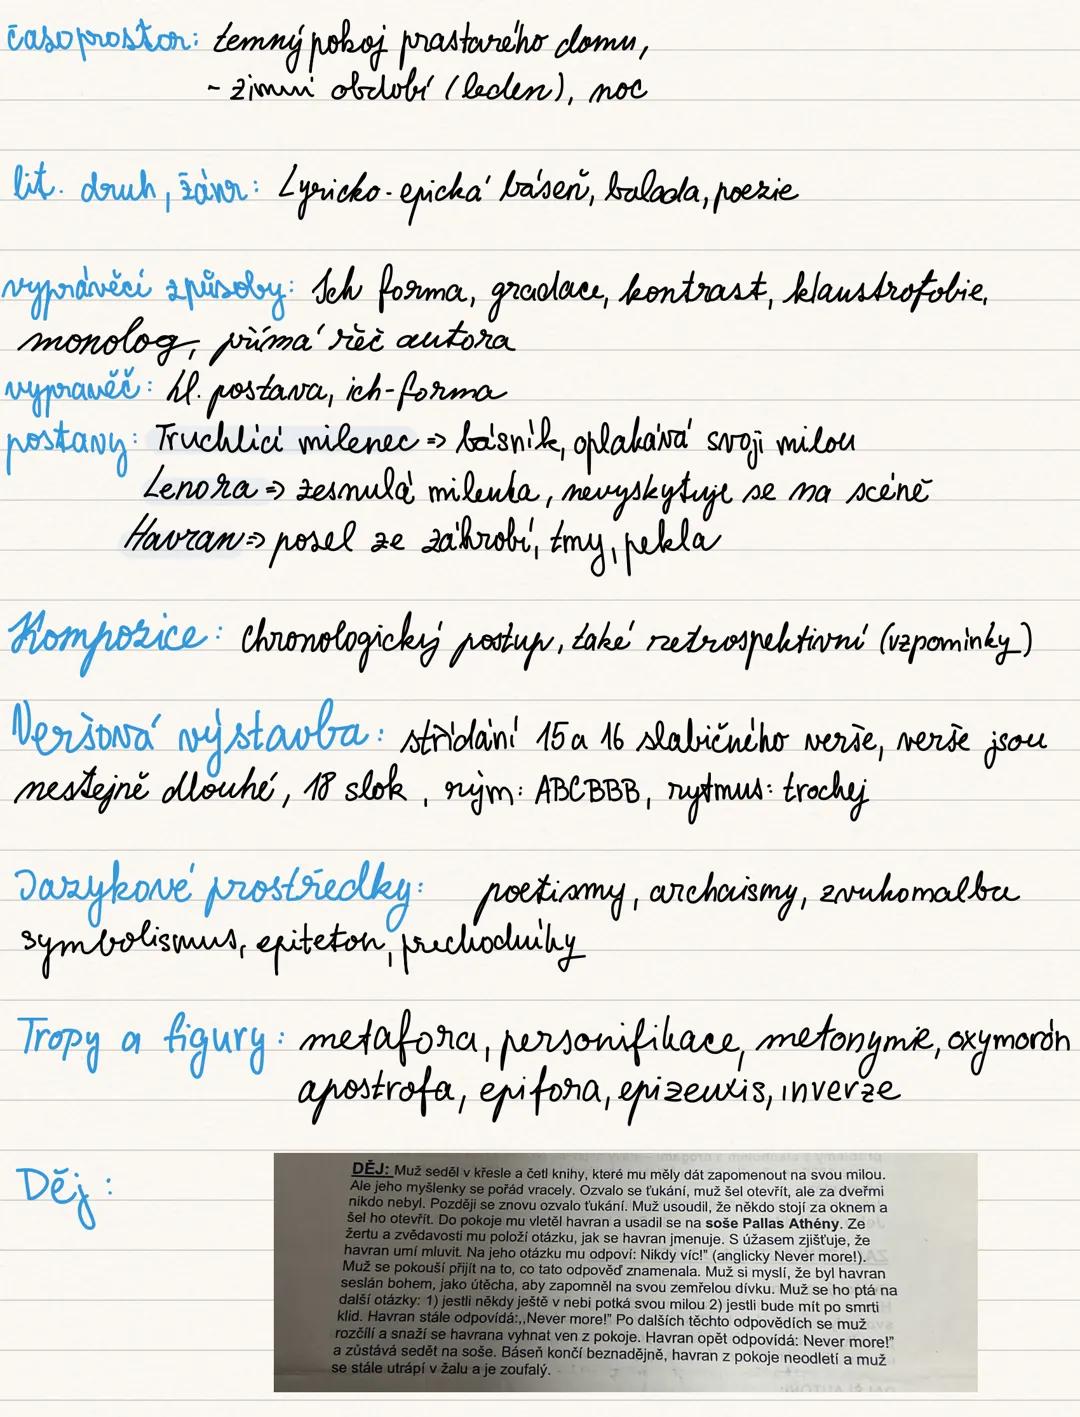 časoprostor: temný pokoj prastarého domu,
- zimní období (leden), noc
lit. druh, žánr: Lyricko-epická báseň, balada, poezie
vyprávěcí způsoby: Ich forma, gradace, kontrast, klaustrofobie,
monolog, přímá řeč autora
vypravěč: hl. postava, ich-forma
postavy: Truchlící milenec => básník, oplakává svoji milou
Lenora => zesnulá milenka, nevyskytuje se na scéně
Havran => posel ze záhrobí, tmy, pekla
Kompozice: chronologický postup, také retrospektivní (vzpomínky)
Veršová výstavba: střídání 15 a 16 slabičného verše, verše jsou
nestejně dlouhé, 18 slok, rým: ABCBBB, rytmus: trochej
Jazykové prostředky: poetismy, archaismy, zvukomalba
symbolismus, epiteton, přechodníky
Tropy a figury: metafora, personifikace, metonymie, oxymorón
apostrofa, epifora, epizeuxis, inverze
Děj:
DĚJ: Muž seděl v křesle a četl knihy, které mu měly dát zapomenout na svou milou.
Ale jeho myšlenky se pořád vracely. Ozvalo se ťukání, muž šel otevřít, ale za dveřmi
nikdo nebyl. Později se znovu ozvalo ťukání. Muž usoudil, že někdo stojí za oknem a
šel ho otevřít. Do pokoje mu vletěl havran a usadil se na soše Pallas Athény. Ze
žertu a zvědavosti mu položí otázku, jak se havran jmenuje. S úžasem zjišťuje, že
havran umí mluvit. Na jeho otázku mu odpoví: Nikdy víc!" (anglicky Never more!).
Muž se pokouší přijít na to, co tato odpověď znamenala. Muž si myslí, že byl havran
seslán bohem, jako útěcha, aby zapomněl na svou zemřelou dívku. Muž se ho ptá na
další otázky: 1) jestli někdy ještě v nebi potká svou milou 2) jestli bude mít po smrti
klid. Havran stále odpovídá:,,Never more!" Po dalších těchto odpovědích se muž
rozčílí a snaží se havrana vyhnat ven z pokoje. Havran opět odpovídá: Never more!"
a zůstává sedět na soše. Báseň končí beznadějně, havran z pokoje neodletí a muž
se stále utrápí v žalu a je zoufalý.